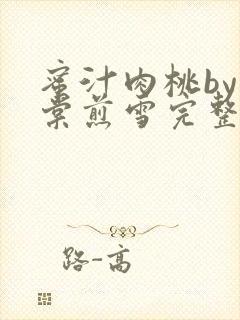 蜜汁肉桃by
棠煎雪完整
路-高